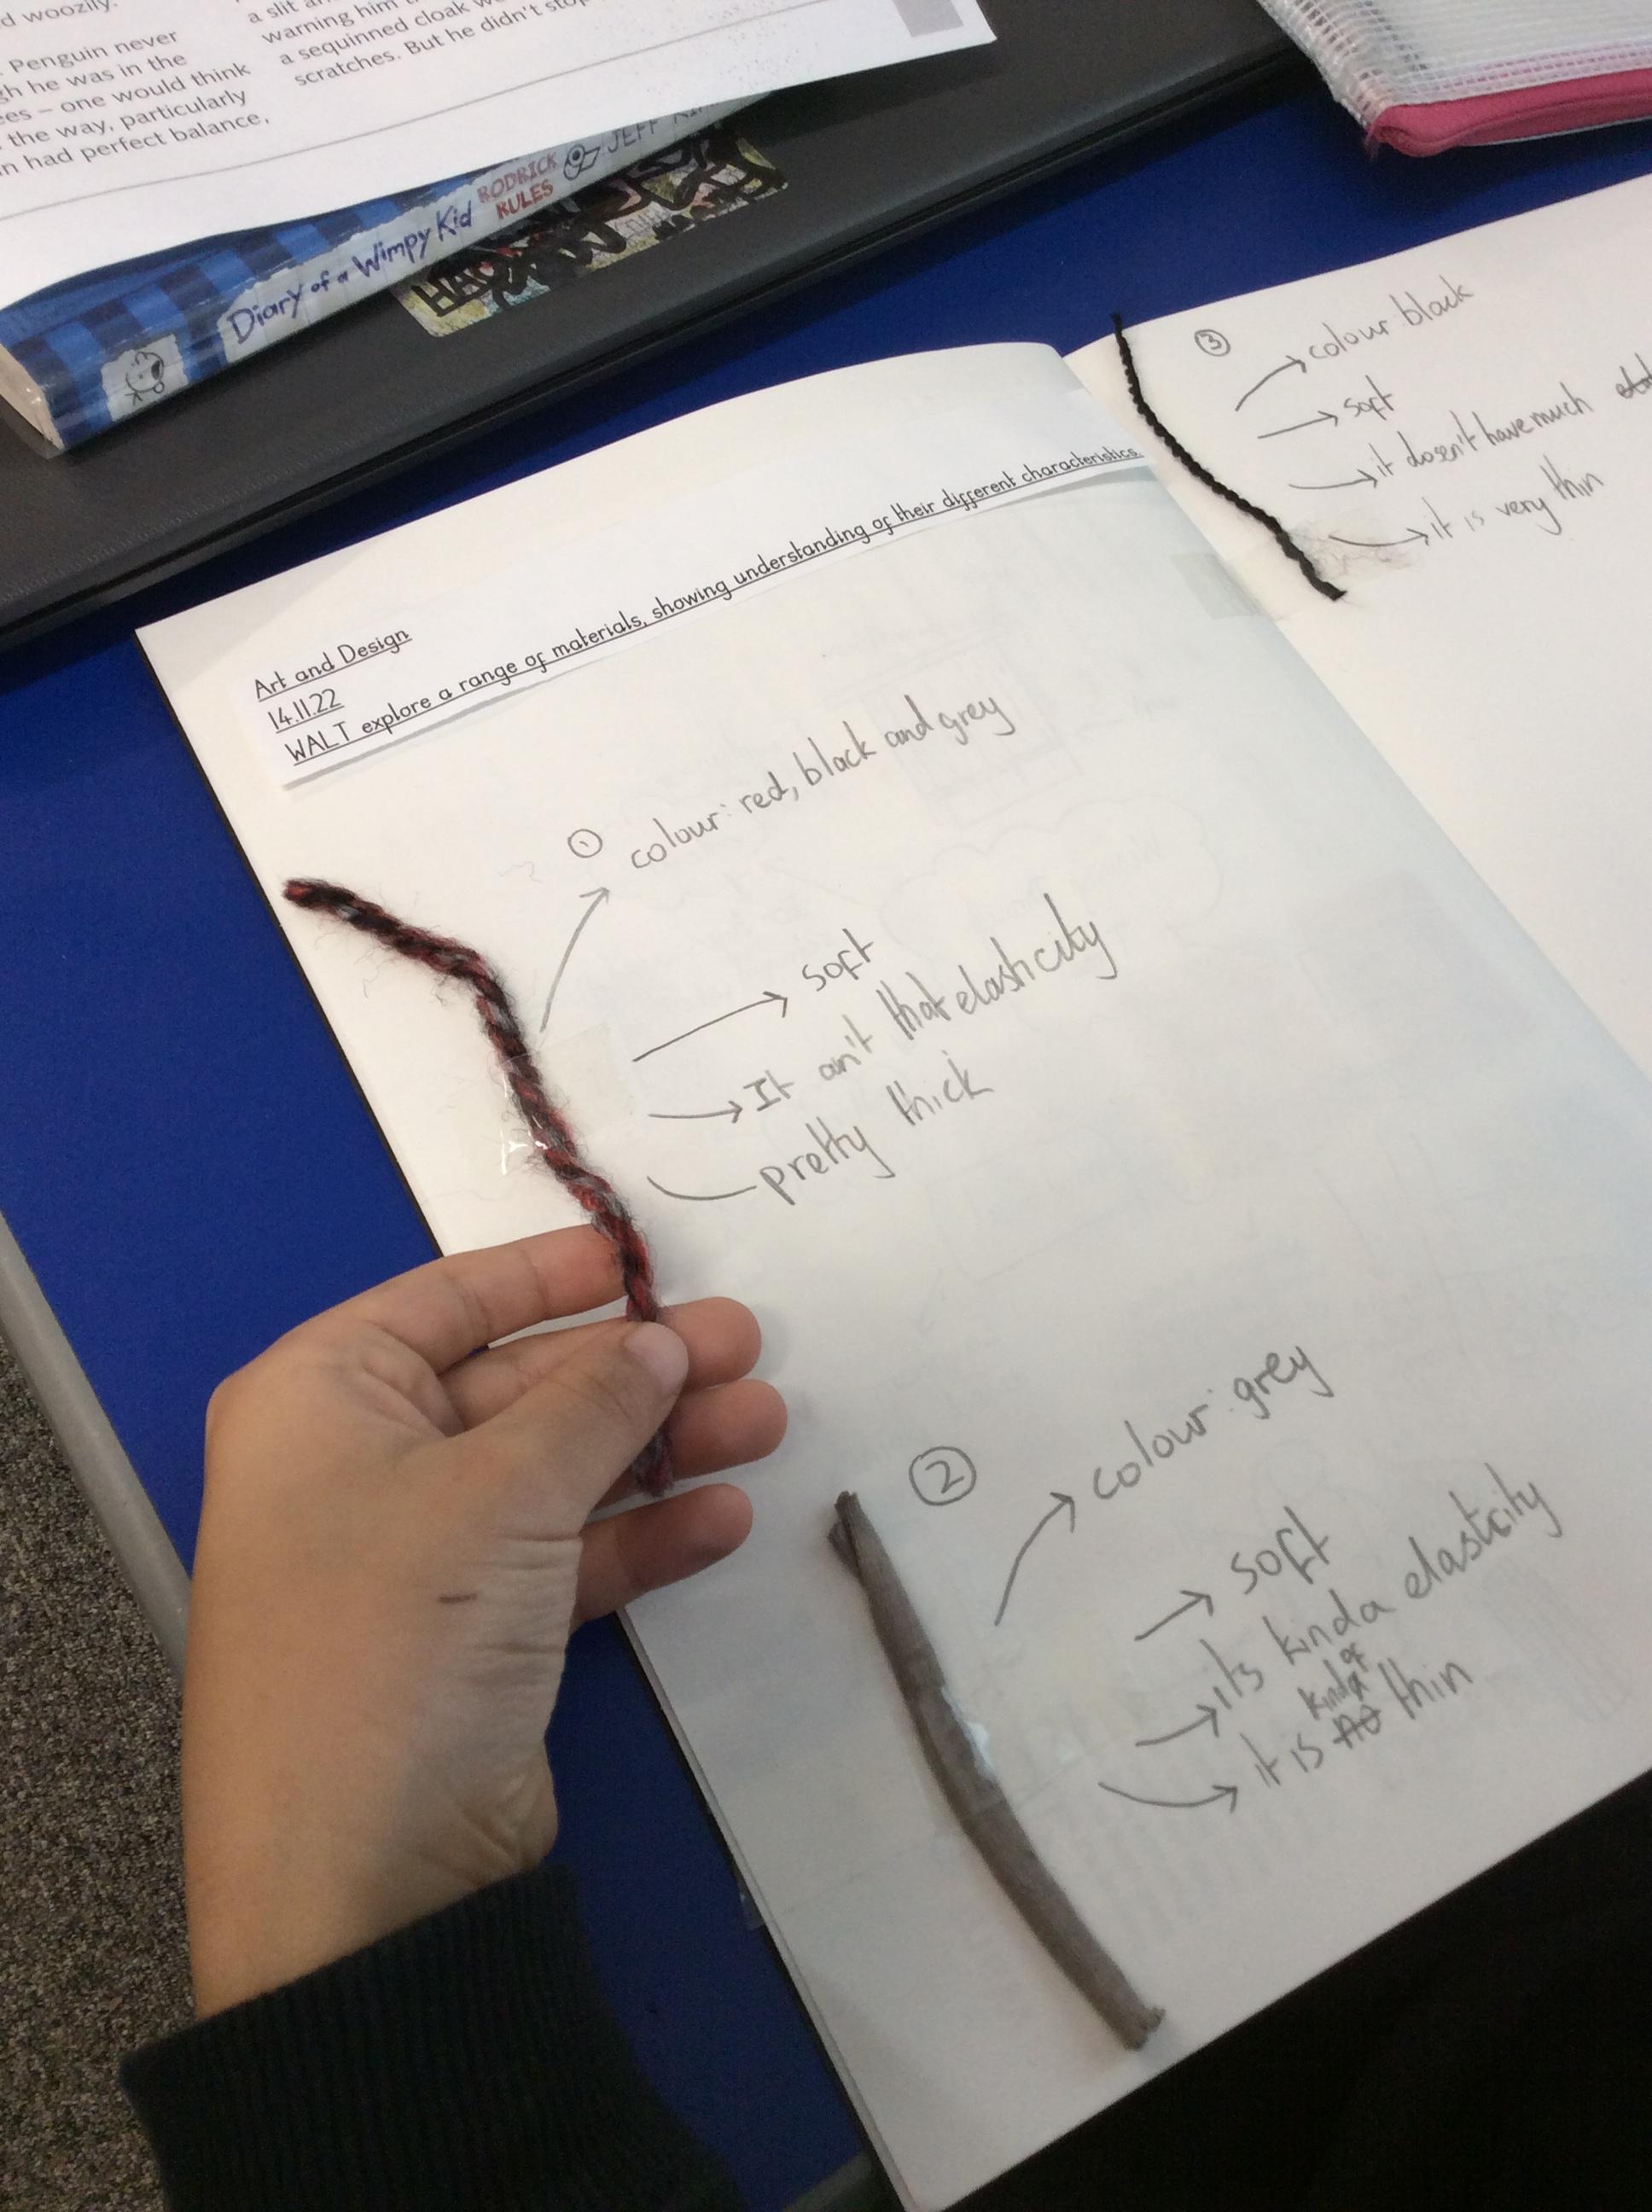 d woozily.
. Penguin never
gh he was in the
ees – one would think
the way, particularly
n had perfect balance,
a slit
warning him
a sequinned cloak
scratches. But he didn't stop
Diary of a Wimpy Kid
RODRICK
RULES
JEFF
Art and Design
14.11.22
WALT explore a range of materials, showing understanding of their different characteristics.
①
colour: red, black and grey
soft
It ain't that elasticity
pretty thick
②
colour: grey
soft
its kinda elasticity
kinda of
it is thin
③
colour black
soft
it dosen't have much
it is very thin